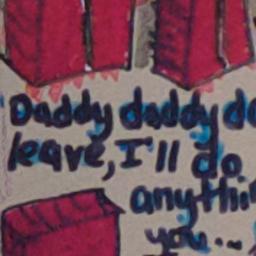 Daddy daddy do
leave, I'll do
anythin
you...